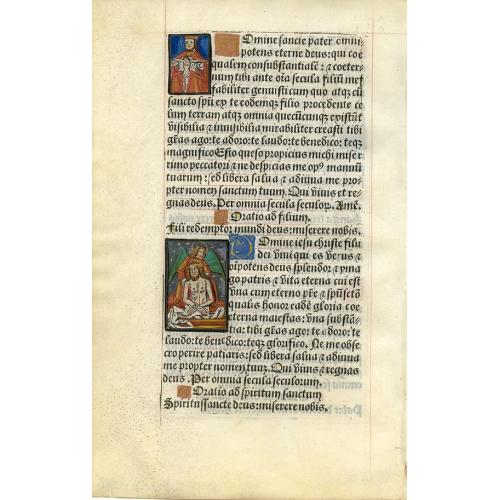 Domine sancte pater omni-
potens eterne deus: qui coe
qualem consubstantialē: ⁊ coeter-
num tibi ante oīa secula filiū inef
fabiliter genuisti cum quo atqꝫ cū
sancto spū ex te eodemqꝫ filio procedente ce
lum terram atqꝫ omnia quecūcunqꝫ existūt
visibilia ⁊ inuisibilia mirabiliter creasti tibi
gr̄as ago: te adoro: te laudo: te benedico: teqꝫ
magnifico Esto queso propicius michi miser
rimo peccatori ⁊ ne despicias me opꝰ manuū
tuarum: sed libera salua ⁊ adiuua me pro-
pter nomen sanctum tuum. Qui viuis et re-
gnas deus. Per omnia secula seculoꝝ. Amē.
Oratio ad filium.
Fili redemptor mundi deus: miserere nobis.
Domine iesu christe filii
dei viui qui es verus ⁊
oīpotens deus splendor ⁊ yma
go patris ⁊ vita eterna cui est
vna cum eterno pr̄e ⁊ spūsctō
equalis honor eadē gloria coe
eterna maiestas: vna substā-
tia: tibi gr̄as ago: te adoro: te
laudo: te benedico: teqꝫ glorifico. Ne me obse
cro perire patiaris: sed libera salua ⁊ adiuua
me propter nomen tuuꝫ. Qui viuis ⁊ regnas
deus. Per omnia secula seculorum.
Oratio ad spiritum sanctum
Spiritussancte deus: miserere nobis.